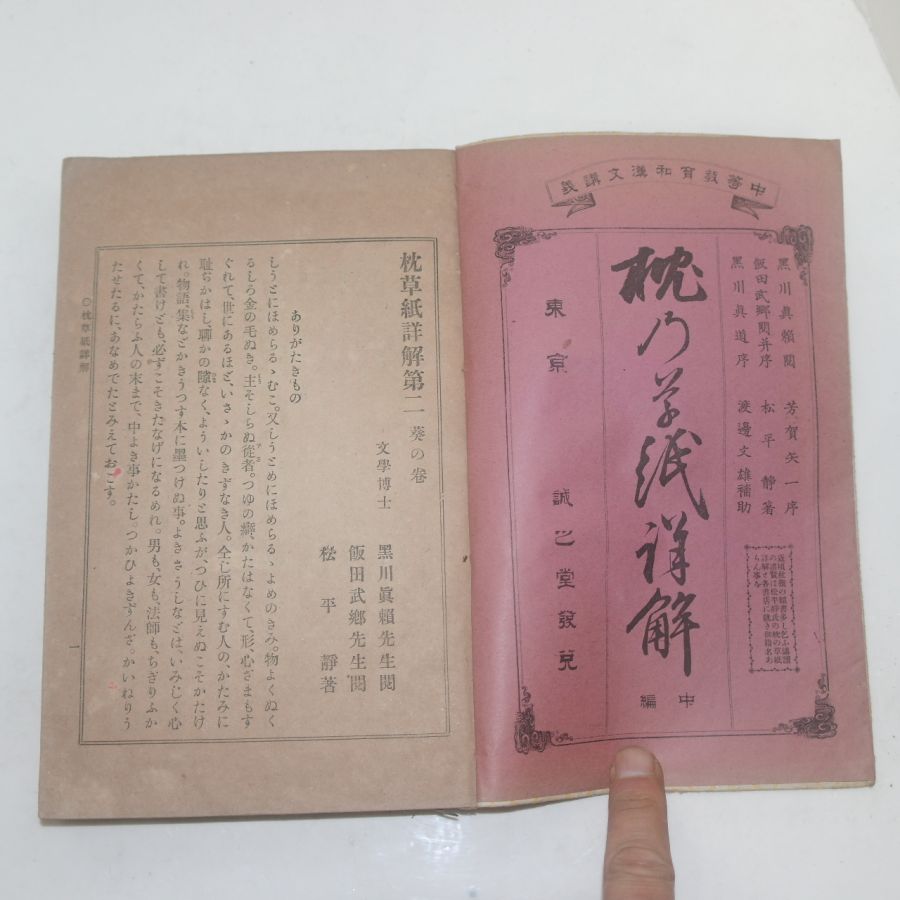 中等教育和漢文講義
黑川眞賴閱　芳賀矢一序
飯田武鄕閱并序　松平靜著
黑川眞道序　渡邊文雄補助
詳解と各書店に就き御指名あ
らん事を
枕乃草紙詳解
中編
東京　誠之堂發兌
枕草紙詳解第二　葵の卷
文學博士　黑川眞賴先生閱
飯田武鄕先生閱
松平靜著
ありがたきもの
しうとにほめらるゝむこ。又しうとめにほめらるゝよめのきみ。物よくぬく
るしろ金の毛ぬき。主そしらぬ從者。つゆの癖、かたはなくて、形、心ざまもす
ぐれて、世にあるほど、いさゝかのきずなき人。全じ所にすむ人の、かたみに
耻ぢかはし、聊かの隙なく、よういしたりと思ふが、つひに見えぬこそかたけ
れ。物語、集などかきうつす本に墨つけぬ事。よきさうしなどは、いみじく心
して書けども、必ずこそきたなげになるめれ。男も、女も、法師も、ちぎりふか
くて、かたらふ人の末まで、中よき事かたし。つかひよきずんざ。かいねりう
たせたるに、あなめでたとみえておこす。
〇枕草紙詳解
一